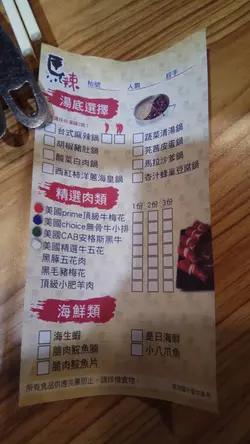 辣 檯號 人數 經手
湯底選擇
台式麻辣鍋 蔬菜清湯鍋
胡椒豬肚鍋 芫茜皮蛋鍋
酸菜白肉鍋 馬拉沙爹鍋
西紅柿洋蔥海皇鍋 杏汁蜂巢豆腐鍋
精選肉類 1份 2份 3份
美國prime頂級牛梅花
美國choice無骨牛小排
美國CAB安格斯黑牛
美國精選牛五花
黑豚五花肉
黑毛豬梅花
頂級小肥羊肉
海鮮類
海生蝦 是日海鮮
脆肉鯇魚腩 小八爪魚
脆肉鯇魚片
所有食品供應完畢即止，請珍惜食物。